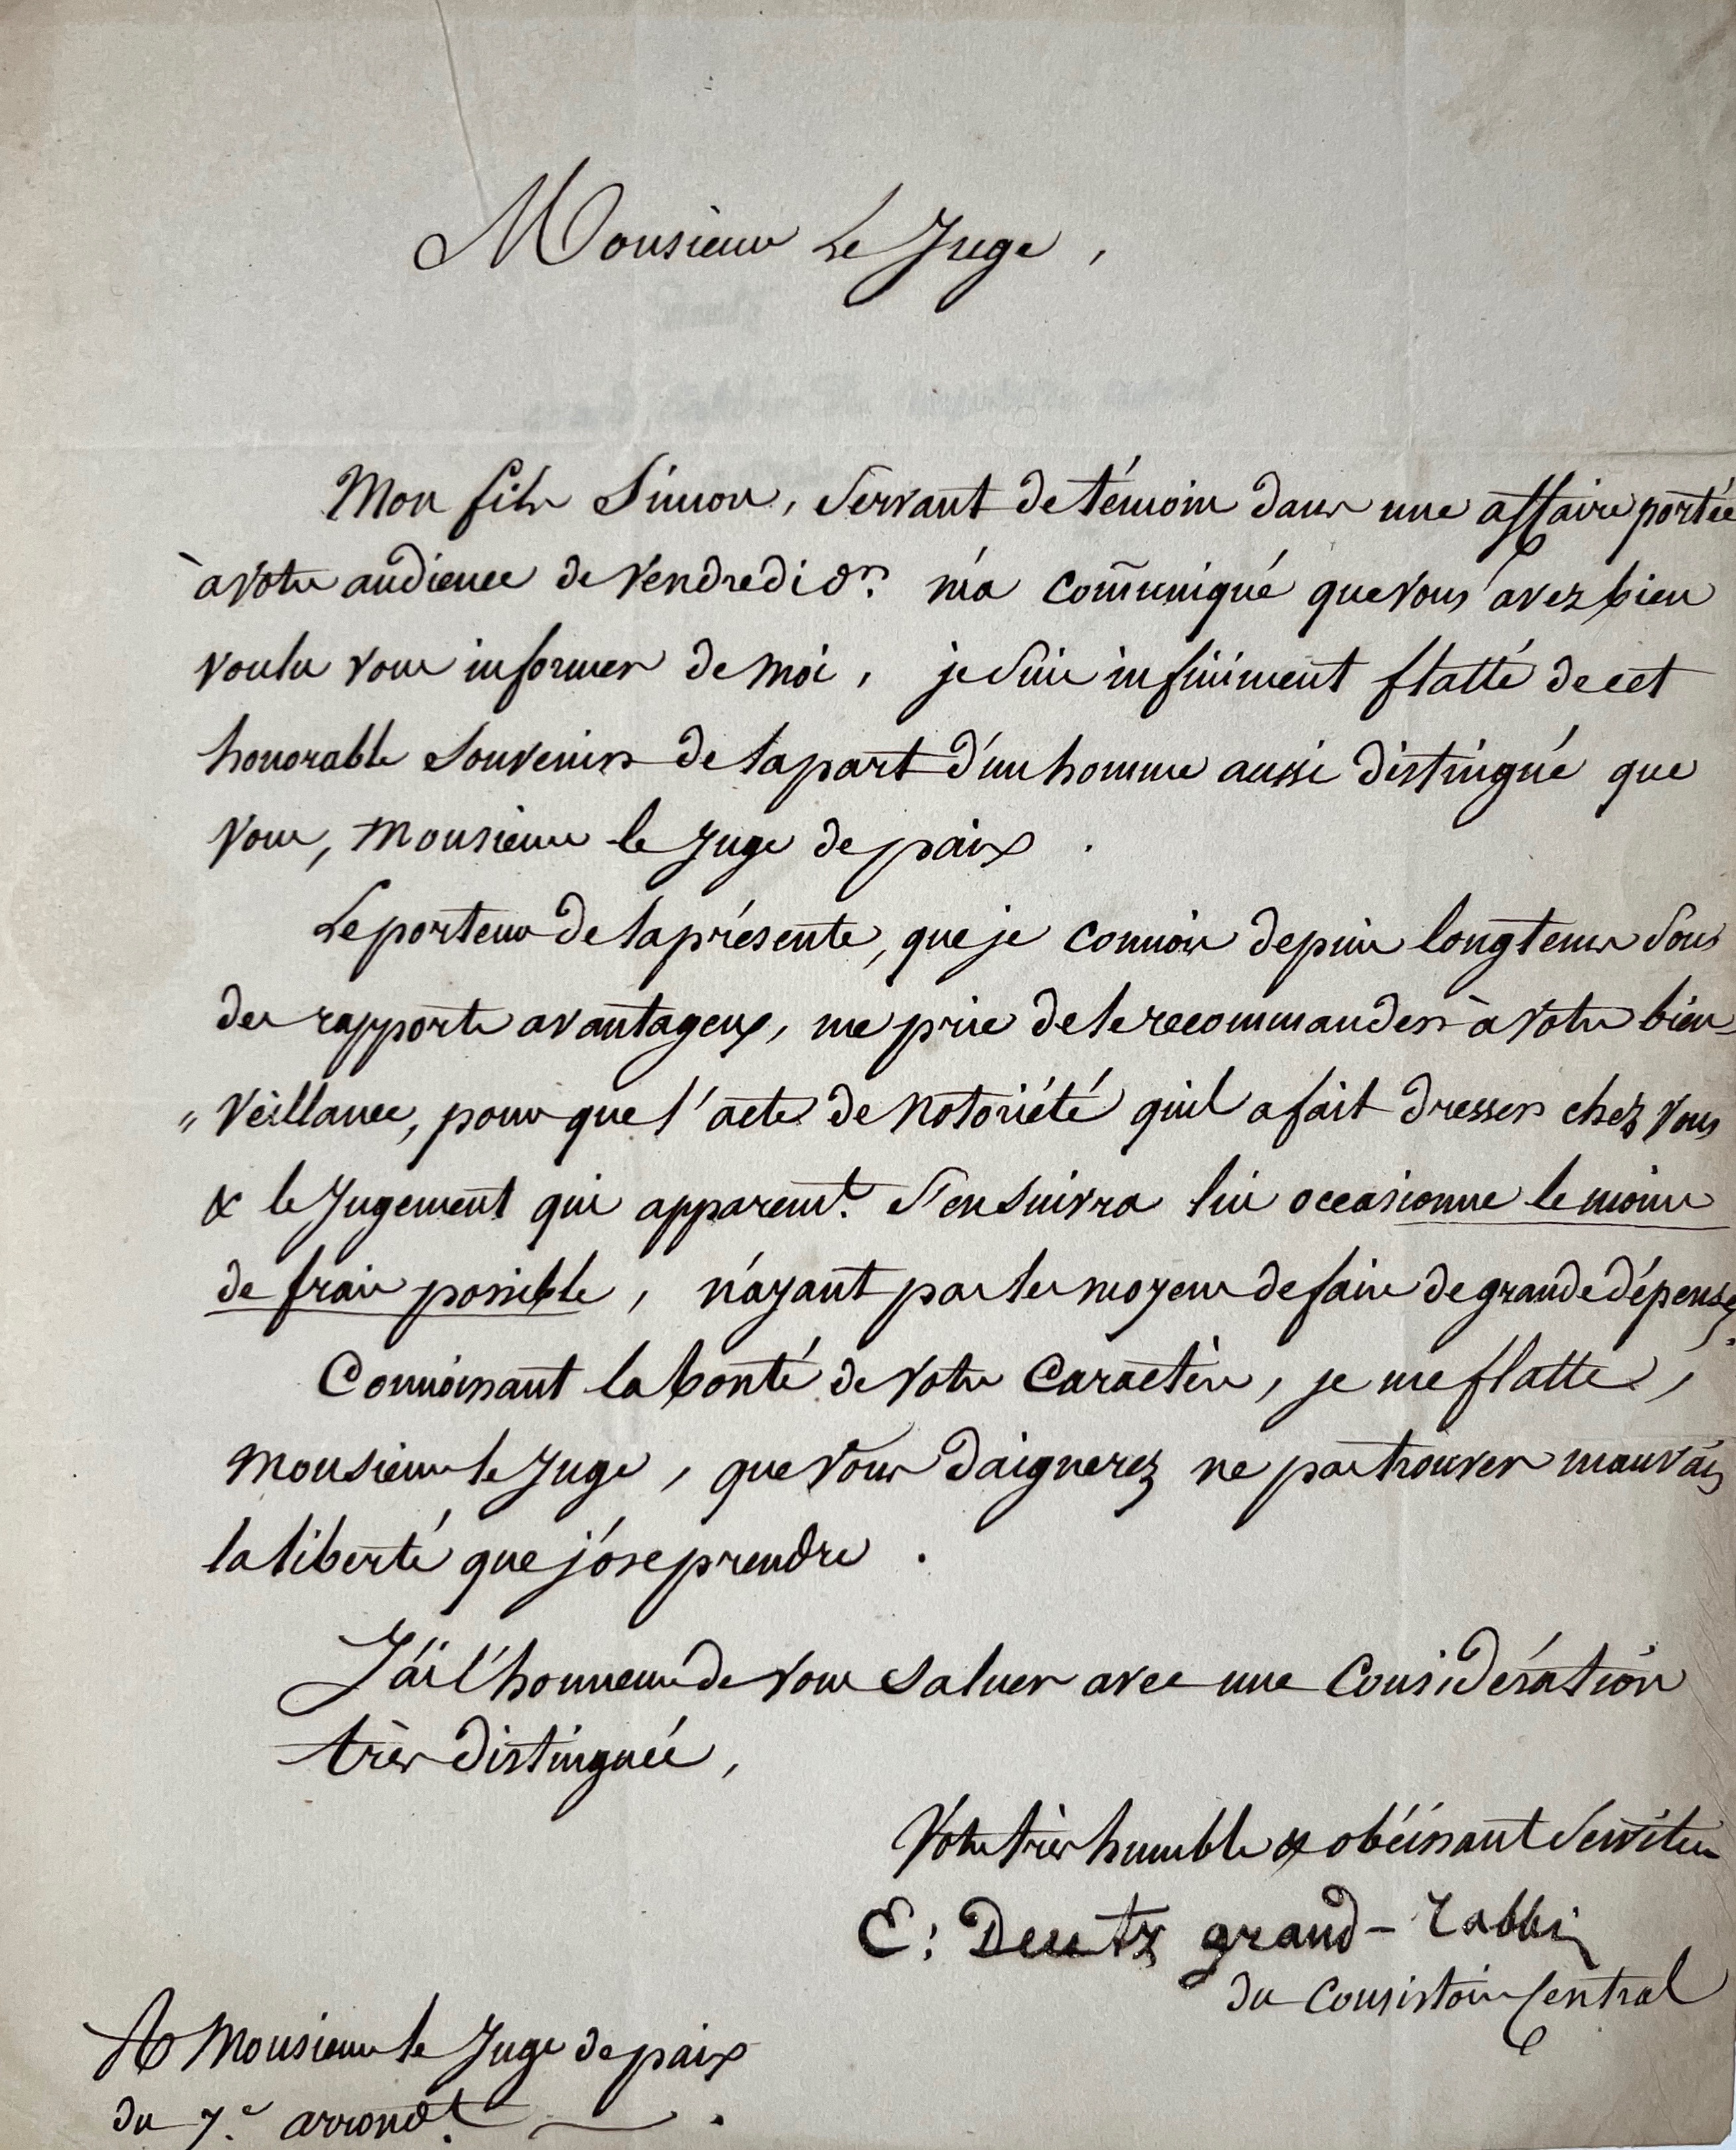 Monsieur Le Juge,
Mon fils Simon, Servant de témoin dans une affaire portée
à votre audience de Vendredi dr. m'a com̄uniqué que vous avez bien
voulu vous informer de moi, je suis infiniment flatté de cet
honorable Souvenir de la part d'un homme aussi distingué que
vous, Monsieur le Juge de paix.
Le porteur de la présente, que je connois depuis longtems Sous
des rapports avantageux, me prie de le recommander à votre bien-
„ veillance, pour que l'acte de Notoriété qu'il a fait dresser chez vous
& le Jugement qui apparemt. S'en Suivra lui occasionne le moins
de frais possible, n'ayant pas les moyens de faire de grande dépenses.
Connoissant la bonté de votre Caractère, je me flatte,
Monsieur le Juge, que vous daignerez ne pas trouver mauvais
la liberté que j'ose prendre.
J'ai l'honneur de vous Saluer avec une Considération
très distinguée,
Votre très humble & obéissant Serviteur
E: Deutz grand-rabbin
du Consistoire Central
A Monsieur le Juge de paix
du 7.e arrondt.